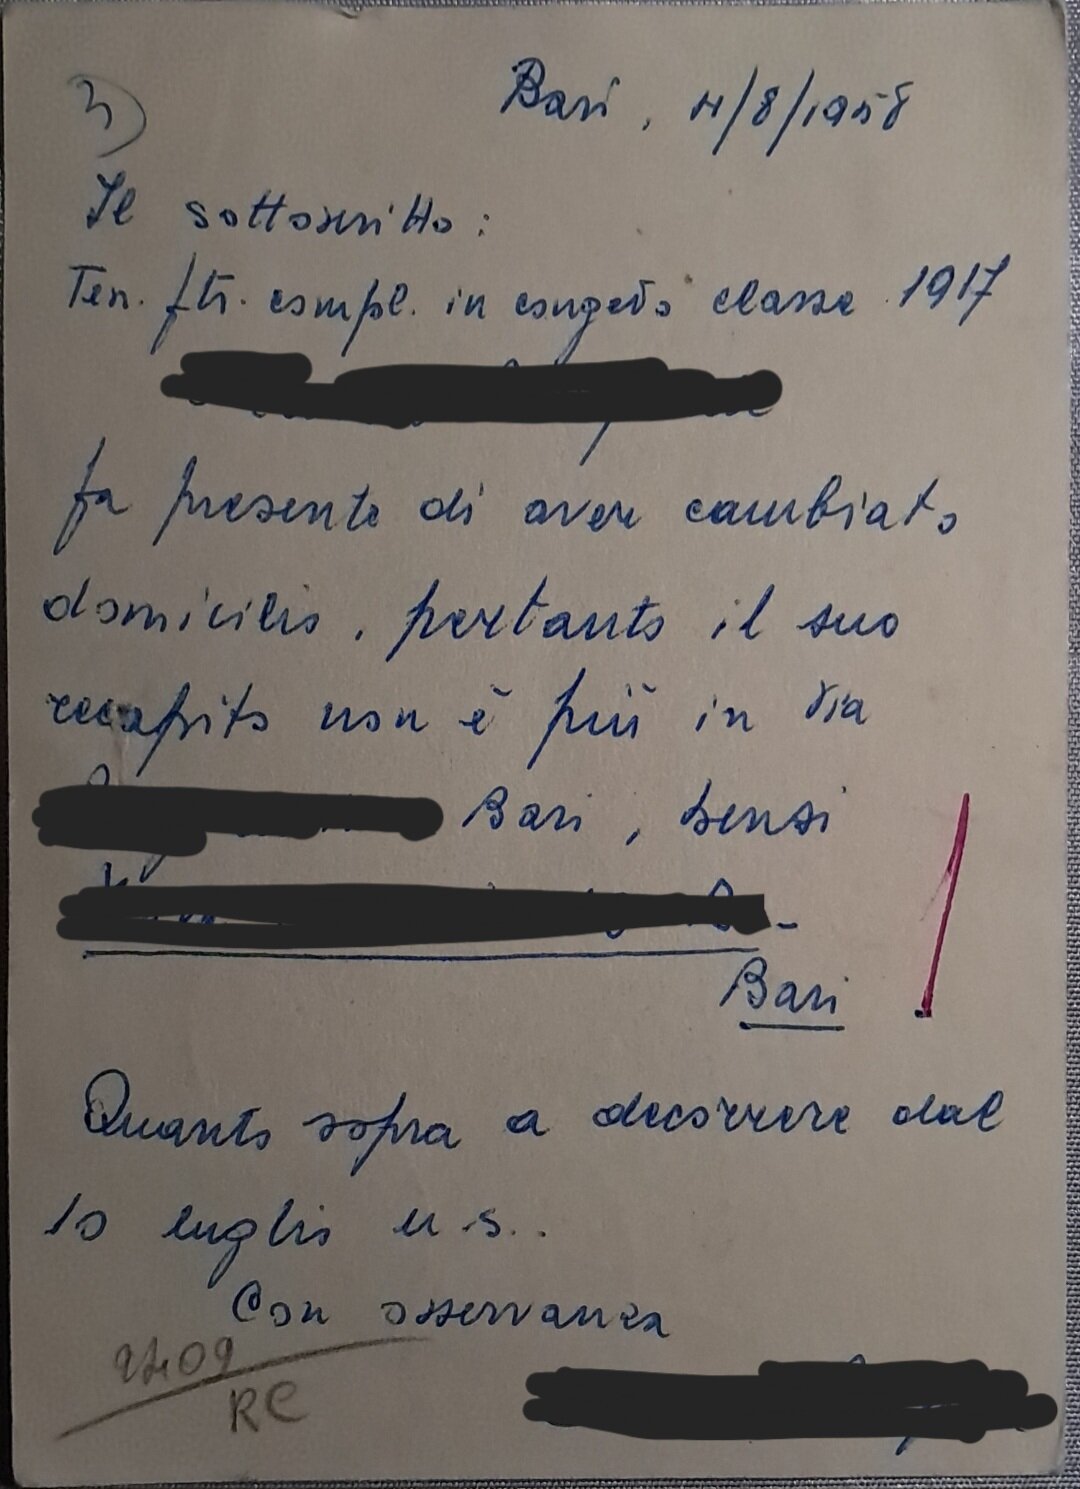 3)
Bari, 4/8/1958
Il sottoscritto:
Ten. ftr. compl. in congedo classe 1917
fa presente di aver cambiato
domicilio, pertanto il suo
recapito non è più in via
Bari, bensi
Bari
Quanto sopra a decorrere dal
10 luglio u.s..
Con osservanza
RC